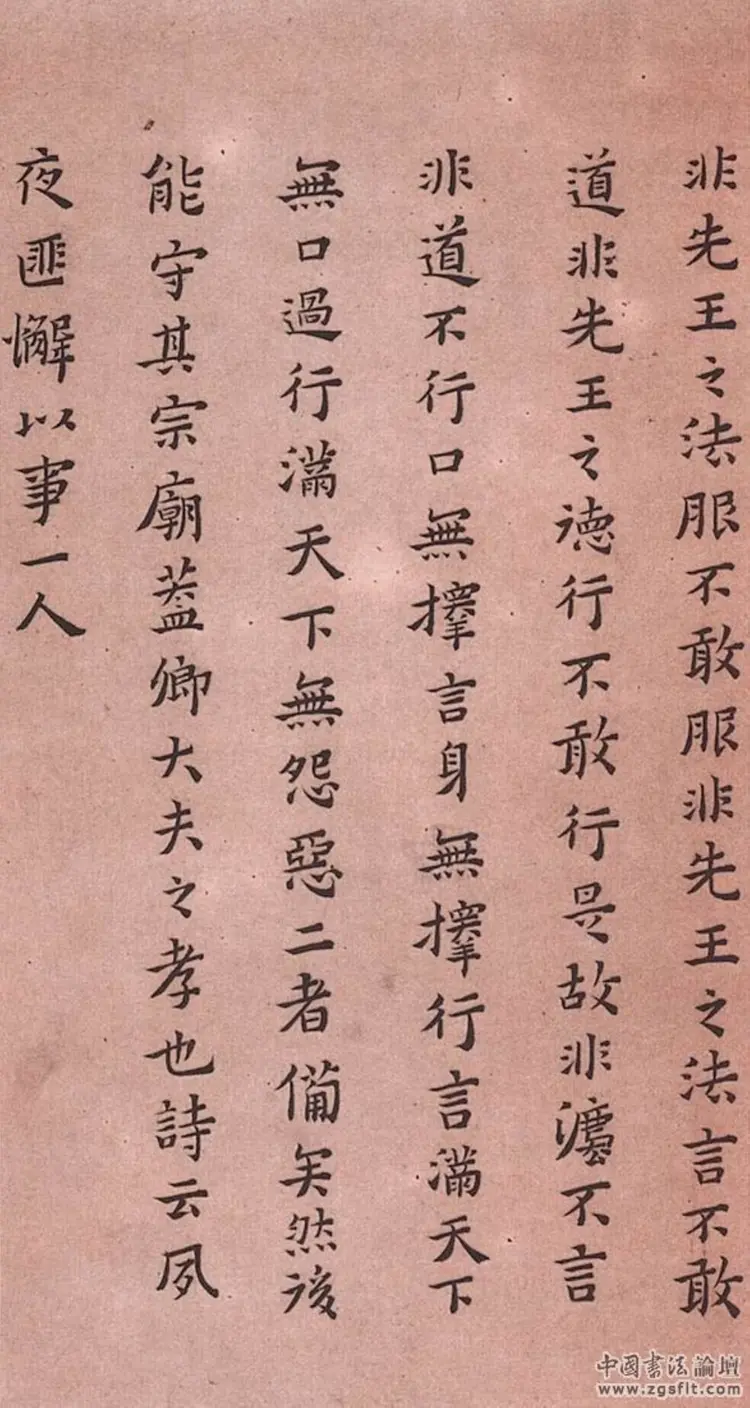 非先王之法服不敢服非先王之法言不敢
道非先王之德行不敢行是故非灋不言
非道不行口無擇言身無擇行言滿天下
無口過行滿天下無怨惡二者備矣然後
能守其宗廟蓋卿大夫之孝也詩云夙
夜匪懈以事一人
中國書法論壇
www.zgsflt.com